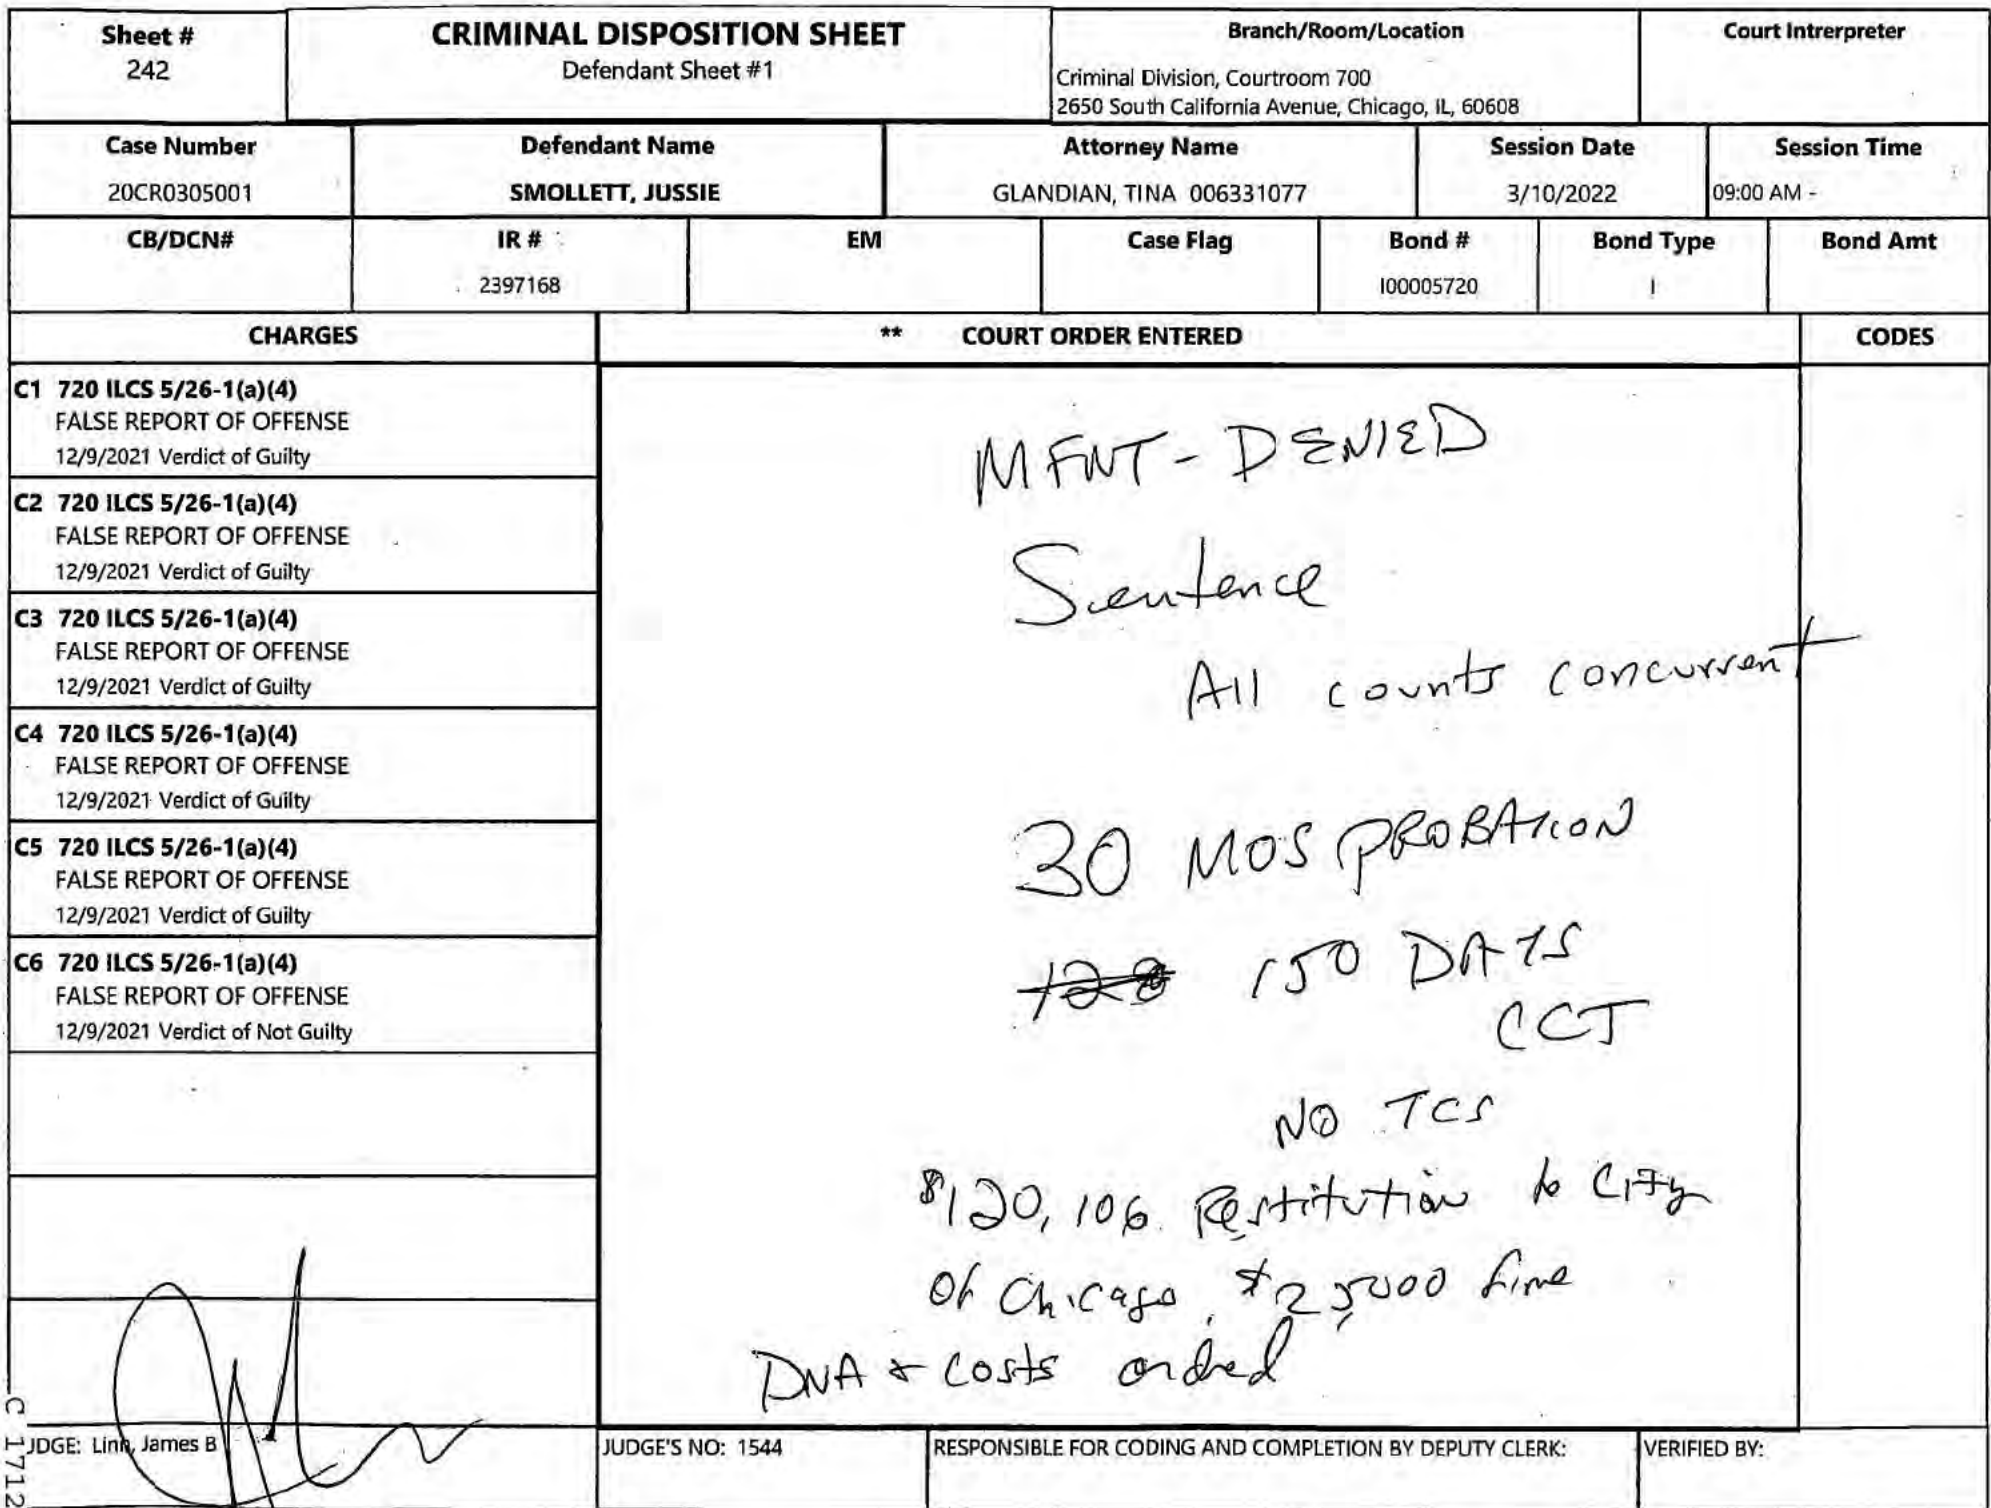 Sheet #
242
CRIMINAL DISPOSITION SHEET
Defendant Sheet #1
Branch/Room/Location
Criminal Division, Courtroom 700
2650 South California Avenue, Chicago, IL, 60608
Court Intrerpreter
Case Number
20CR0305001
Defendant Name
SMOLLETT, JUSSIE
Attorney Name
GLANDIAN, TINA 006331077
Session Date
3/10/2022
Session Time
09:00 AM -
CB/DCN#
IR #
2397168
EM
Case Flag
Bond #
I00005720
Bond Type
I
Bond Amt
CHARGES
** COURT ORDER ENTERED
CODES
C1 720 ILCS 5/26-1(a)(4)
FALSE REPORT OF OFFENSE
12/9/2021 Verdict of Guilty
C2 720 ILCS 5/26-1(a)(4)
FALSE REPORT OF OFFENSE
12/9/2021 Verdict of Guilty
C3 720 ILCS 5/26-1(a)(4)
FALSE REPORT OF OFFENSE
12/9/2021 Verdict of Guilty
C4 720 ILCS 5/26-1(a)(4)
FALSE REPORT OF OFFENSE
12/9/2021 Verdict of Guilty
C5 720 ILCS 5/26-1(a)(4)
FALSE REPORT OF OFFENSE
12/9/2021 Verdict of Guilty
C6 720 ILCS 5/26-1(a)(4)
FALSE REPORT OF OFFENSE
12/9/2021 Verdict of Not Guilty
MFNT - DENIED
Sentence
All counts concurrent
30 MOS PROBATION
150 DAYS
CCJ
NO TCS
$120,106 Restitution to City
Of Chicago, $25,000 fine
DNA + costs ordred
JUDGE: Linn, James B
JUDGE'S NO: 1544
RESPONSIBLE FOR CODING AND COMPLETION BY DEPUTY CLERK:
VERIFIED BY:
C 1712